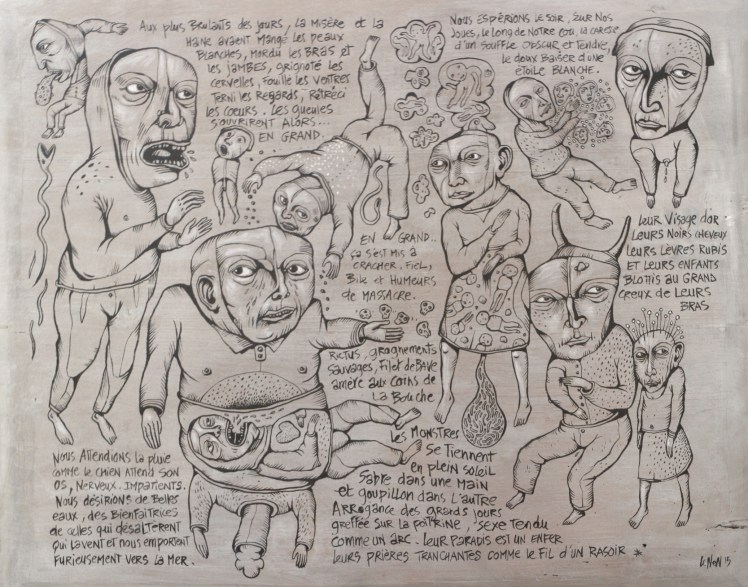 Aux plus Brulants des jours, la misère et la
Haine avaient mangé les peaux
Blanches, mordu les bras et
les jambes, grignoté les
cervelles, fouillé les ventres
Terni les regards, rétréci
les coeurs. Les gueules
s'ouvriront alors...
En grand.
Nous espérions le soir, sur nos
joues, le long de notre cou, la caresse
d'un souffle obscur et tendre,
le doux baiser d'une
étoile blanche.
En grand..
ça s'est mis à
cracher, fiel,
Bile et Humeurs
de massacre.
Leur visage d'or
Leurs noirs cheveux
Leurs lèvres rubis
Et leurs enfants
Blottis au grand
creux de leurs
bras
Rictus, grognements
sauvages, filet de bave
amère aux coins de
la bouche
Nous attendions la pluie
comme le chien attend son
os, nerveux. Impatients.
Nous désirions de belles
eaux, des bienfaitrices
de celles qui désaltèrent
qui lavent et nous emportent
furieusement vers la mer.
Les monstres
se tiennent
en plein soleil
Sabre dans une main
et goupillon dans l'autre
Arrogance des grands jours
greffée sur la poitrine, sexe tendu
comme un arc. Leur paradis est un enfer
leurs prières tranchantes comme le fil d'un rasoir